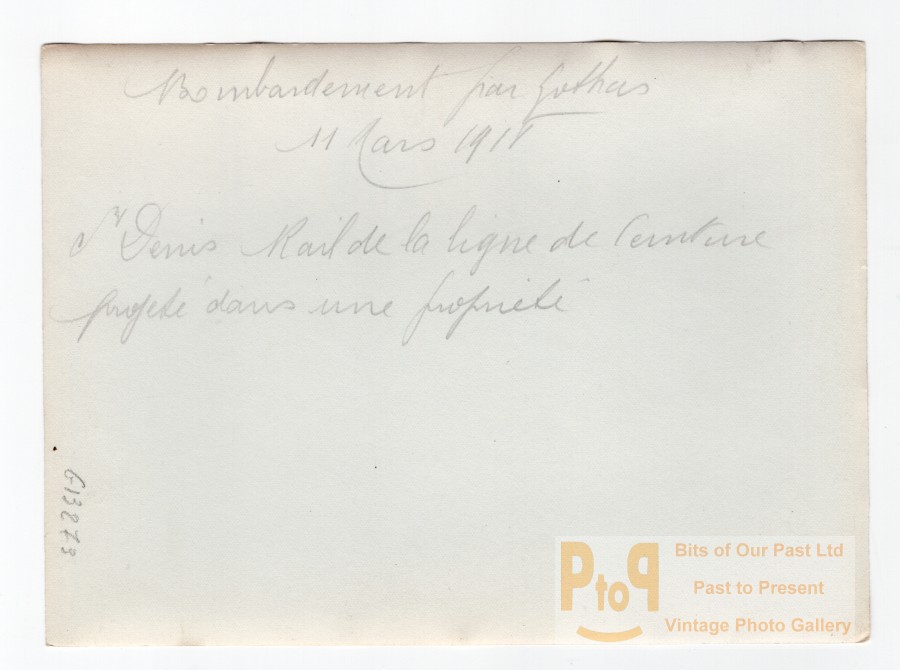 Bombardement par Gothas
11 Mars 1918
St Denis Rail de la ligne de Ceinture
projeté dans une propriété
G13873
PtoP
Bits of Our Past Ltd
Past to Present
Vintage Photo Gallery